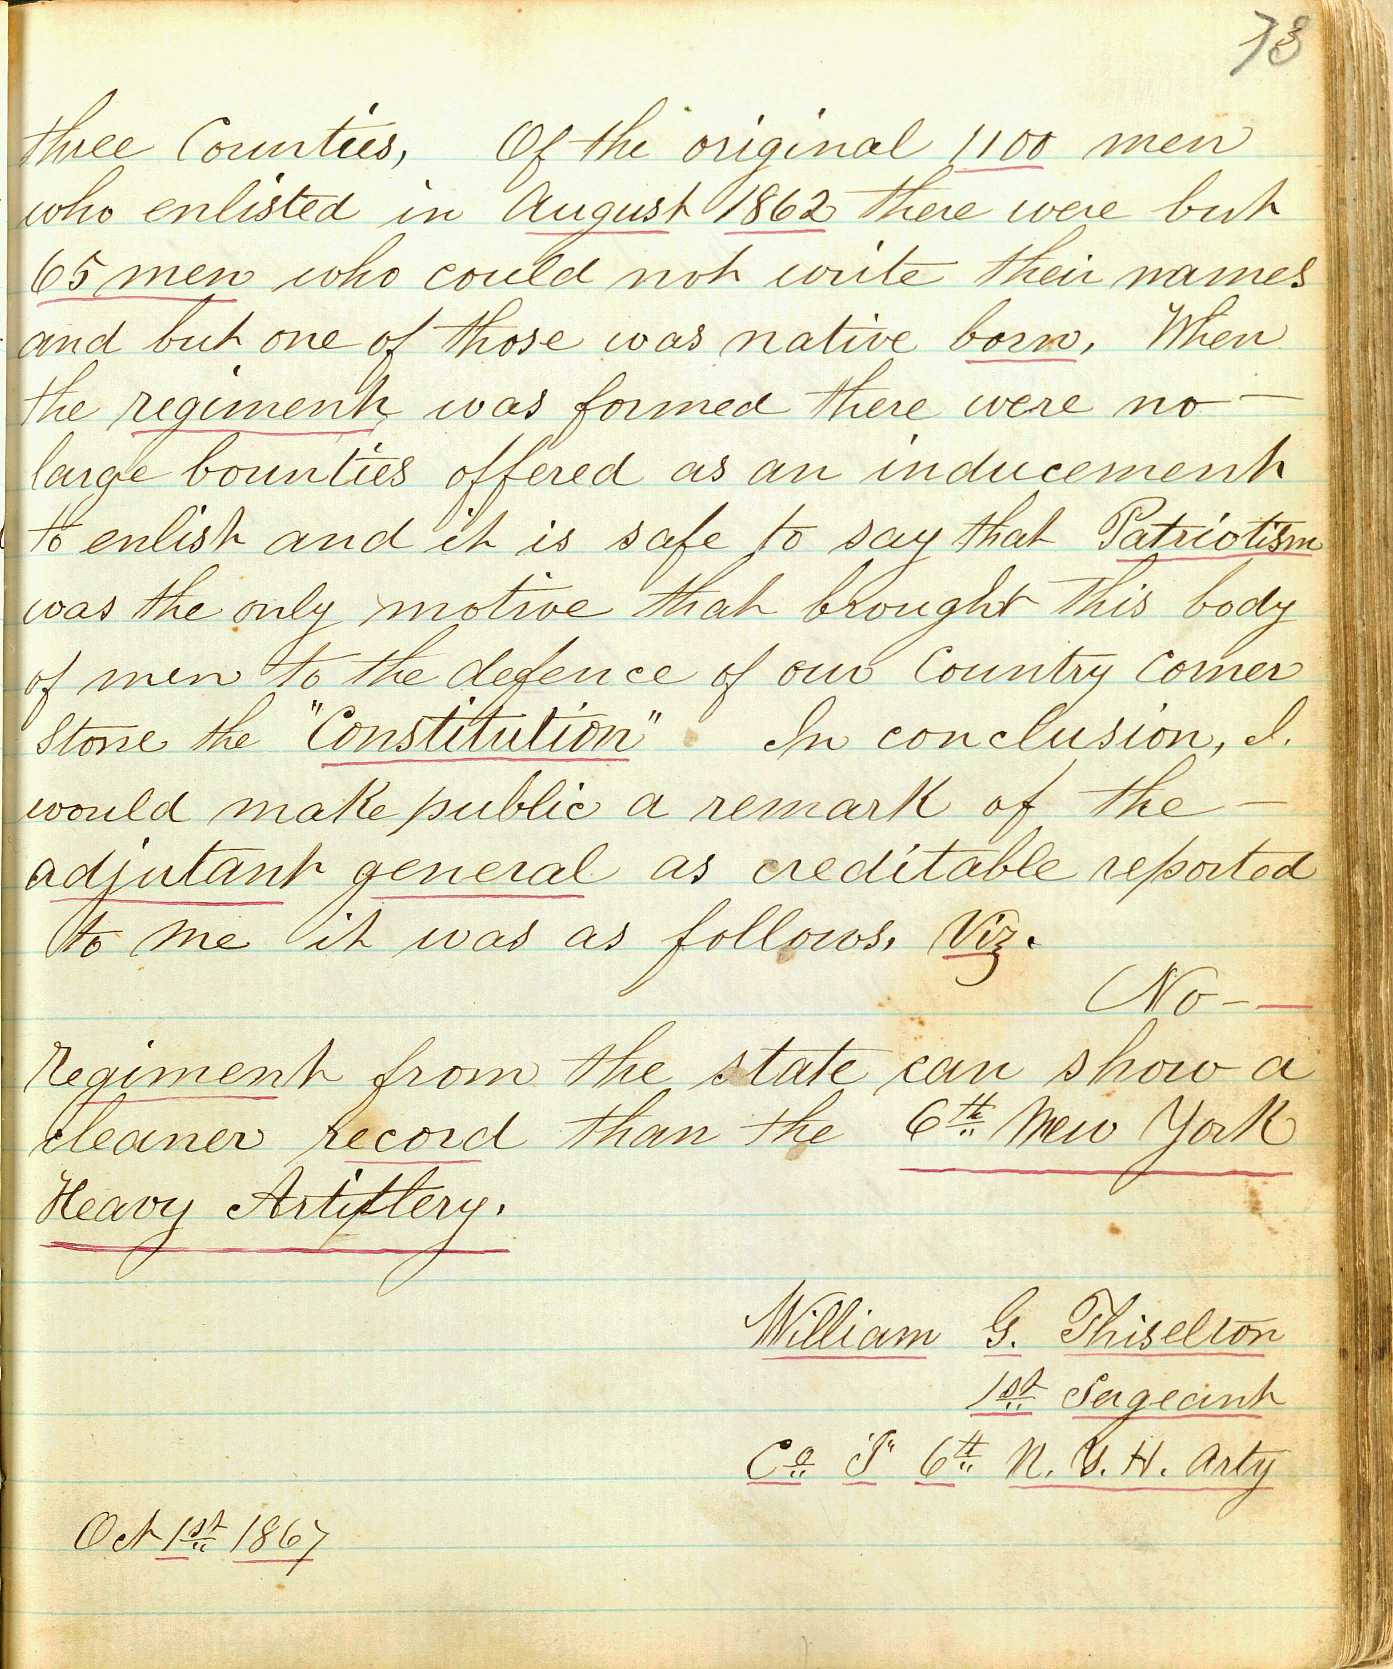 73
three Counties, Of the original 1100 men
who enlisted in August 1862 there were but
65 men who could not write their names
and but one of those was native born, When
the regiment was formed there were no —
large bounties offered as an inducement
to enlist and it is safe to say that Patriotism
was the only motive that brought this body
of men to the defence of our Country Corner
Stone the "Constitution" In conclusion, I.
would make public a remark of the —
adjutant general as creditable reported
to me it was as follows, Viz.
No — —
Regiment from the state can show a
cleaner record than the 6th New York
Heavy Artillery.
William G. Thiselton
1st Sergeant
Co 6th N. Y. H. Arty
Oct 1st 1867